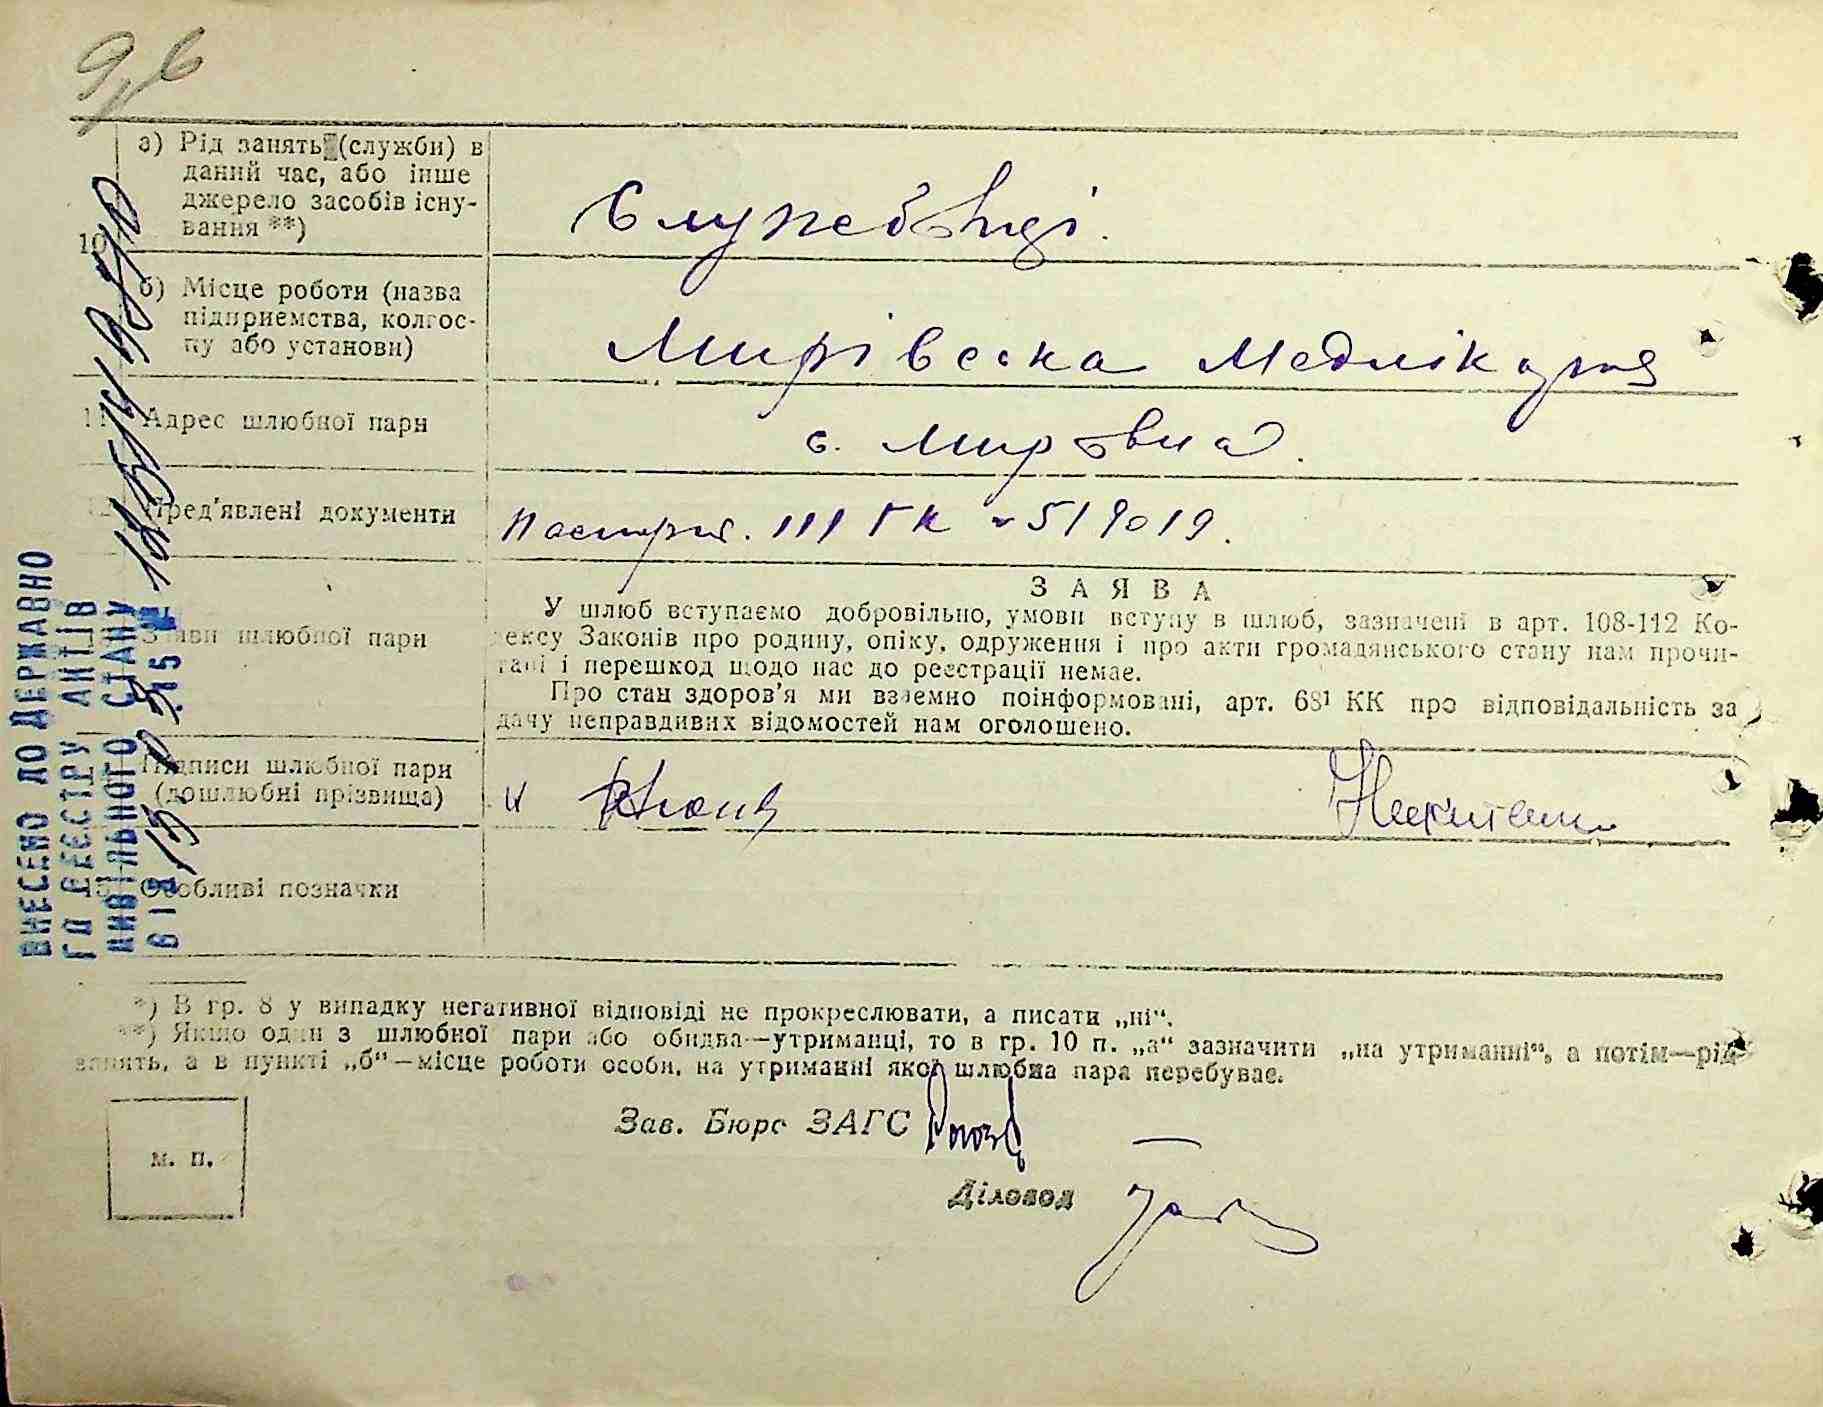 а) Рід занять (служби) в
даний час, або інше
джерело засобів існу-
вання **)
Службовці.
10
б) Місце роботи (назва
підприємства, колгос-
пу або установи)
Мирівська Медлікарня
11 Адрес шлюбної пари
с. Мировка.
12 Пред'явлені документи
Паспорт. III ГК № 519019.
Заяви шлюбної пари
ЗАЯВА
У шлюб вступаємо добровільно, умови вступу в шлюб, зазначені в арт. 108-112 Ко-
дексу Законів про родину, опіку, одруження і про акти громадянського стану нам прочи-
тані і перешкод щодо нас до реєстрації немає.
Про стан здоров'я ми взаємно поінформовані, арт. 68¹ КК про відповідальність за
дачу неправдивих відомостей нам оголошено.
Підписи шлюбної пари
(дошлюбні прізвища)
15 Особливі позначки
ВНЕСЕНО ДО ДЕРЖАВНО
ГО РЕЄСТРУ АКТІВ
ЦИВІЛЬНОГО СТАНУ
ВІД
*) В гр. 8 у випадку негативної відповіді не прокреслювати, а писати „ні“.
**) Якщо один з шлюбної пари або обидва—утриманці, то в гр. 10 п. „а“ зазначити „на утриманні“, а потім—рід
занять, а в пункті „б“—місце роботи особи, на утриманні якої шлюбна пара перебуває.
Зав. Бюро ЗАГС
м. п.
Діловод